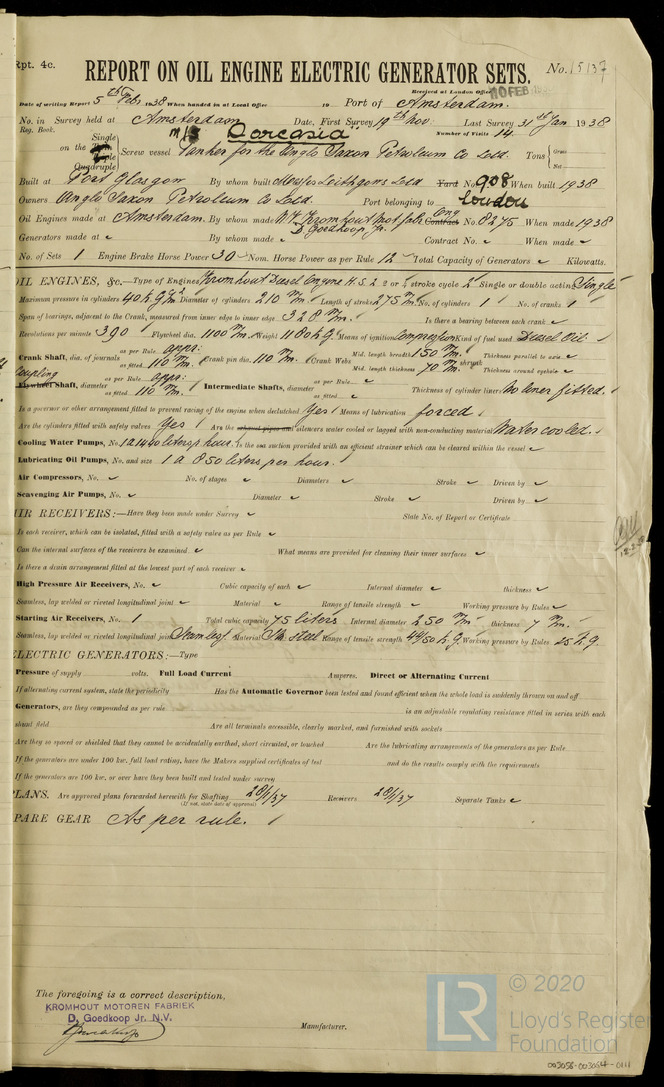 Rpt. 4c.
REPORT ON OIL ENGINE ELECTRIC GENERATOR SETS.
No. 15137
Received at London Office 10 FEB
Date of writing Report 5th Feb. 1938 When handed in at Local Office 19 Port of Amsterdam.
No. in Reg. Book. Survey held at Amsterdam Date, First Survey 19th Nov. Last Survey 31st Jan 1938
Number of Visits 14.
on the Single Triple Quadruple Screw vessel M/S "Dorcasia" Tanker for the Anglo Saxon Petroleum Co Ltd. Tons Gross Net
Built at Port Glasgow By whom built Messrs Leithgows Ltd Yard No. 908 When built 1938
Owners Anglo Saxon Petroleum Co Ltd. Port belonging to London
Oil Engines made at Amsterdam. By whom made N.V. Kromhout Mot. fabr. D. Goedkoop Jr. Eng Contract No. 8275 When made 1938
Generators made at ✓ By whom made ✓ Contract No. ✓ When made ✓
No. of Sets 1 Engine Brake Horse Power 30 Nom. Horse Power as per Rule 12 Total Capacity of Generators ✓ Kilowatts.
OIL ENGINES, &c.—Type of Engines Kromhout Diesel Engine H.S. 2 2 or 4 stroke cycle 2 Single or double acting Single
Maximum pressure in cylinders 40 k.g. Diameter of cylinders 210 m/m. Length of stroke 275 m/m. No. of cylinders 1 No. of cranks 1
Span of bearings, adjacent to the Crank, measured from inner edge to inner edge 328 m/m. Is there a bearing between each crank ✓
Revolutions per minute 390 Flywheel dia. 1100 m/m. Weight 1180 k.g. Means of ignition Compression Kind of fuel used Diesel Oil.
Crank Shaft, dia. of journals as per Rule appr: as fitted 110 m/m. Crank pin dia. 110 m/m. Crank Webs Mid. length breadth 150 m/m. Mid. length thickness 70 m/m. shrunk Thickness parallel to axis ✓ Thickness around eyehole ✓
Coupling Flywheel Shaft, diameter as per Rule appr: as fitted 110 m/m. Intermediate Shafts, diameter as per Rule ✓ as fitted ✓ Thickness of cylinder liner No liner fitted.
Is a governor or other arrangement fitted to prevent racing of the engine when declutched Yes Means of lubrication forced
Are the cylinders fitted with safety valves Yes Are the exhaust pipes and silencers water cooled or lagged with non-conducting material Water cooled.
Cooling Water Pumps, No. 1 a 1440 liters p. hour. Is the sea suction provided with an efficient strainer which can be cleared within the vessel ✓
Lubricating Oil Pumps, No. and size 1 a 850 liters per hour.
Air Compressors, No. ✓ No. of stages ✓ Diameters ✓ Stroke ✓ Driven by ✓
Scavenging Air Pumps, No. ✓ Diameter ✓ Stroke ✓ Driven by ✓
AIR RECEIVERS:—Have they been made under Survey ✓ State No. of Report or Certificate
Is each receiver, which can be isolated, fitted with a safety valve as per Rule ✓
Can the internal surfaces of the receivers be examined ✓ What means are provided for cleaning their inner surfaces ✓
Is there a drain arrangement fitted at the lowest part of each receiver ✓
High Pressure Air Receivers, No. ✓ Cubic capacity of each ✓ Internal diameter ✓ thickness ✓
Seamless, lap welded or riveted longitudinal joint ✓ Material ✓ Range of tensile strength ✓ Working pressure by Rules ✓
Starting Air Receivers, No. 1 Total cubic capacity 75 liters Internal diameter 250 m/m. thickness 7 m/m.
Seamless, lap welded or riveted longitudinal joint Seamless. Material S.M. steel Range of tensile strength 44/50 k.g. Working pressure by Rules 25 k.g.
ELECTRIC GENERATORS:—Type
Pressure of supply volts. Full Load Current Amperes. Direct or Alternating Current
If alternating current system, state the periodicity Has the Automatic Governor been tested and found efficient when the whole load is suddenly thrown on and off
Generators, are they compounded as per rule is an adjustable regulating resistance fitted in series with each
shunt field Are all terminals accessible, clearly marked, and furnished with sockets
Are they so spaced or shielded that they cannot be accidentally earthed, short circuited, or touched Are the lubricating arrangements of the generators as per Rule
If the generators are under 100 kw. full load rating, have the Makers supplied certificates of test and do the results comply with the requirements
If the generators are 100 kw. or over have they been built and tested under survey
PLANS. Are approved plans forwarded herewith for Shafting 28/1/37 Receivers 28/1/37 Separate Tanks ✓
(If not, state date of approval)
SPARE GEAR As per rule.
The foregoing is a correct description,
KROMHOUT MOTOREN FABRIEK
D. Goedkoop Jr. N.V.
Manufacturer.
LR © 2020
Lloyd's Register
Foundation
003053-003054-0111